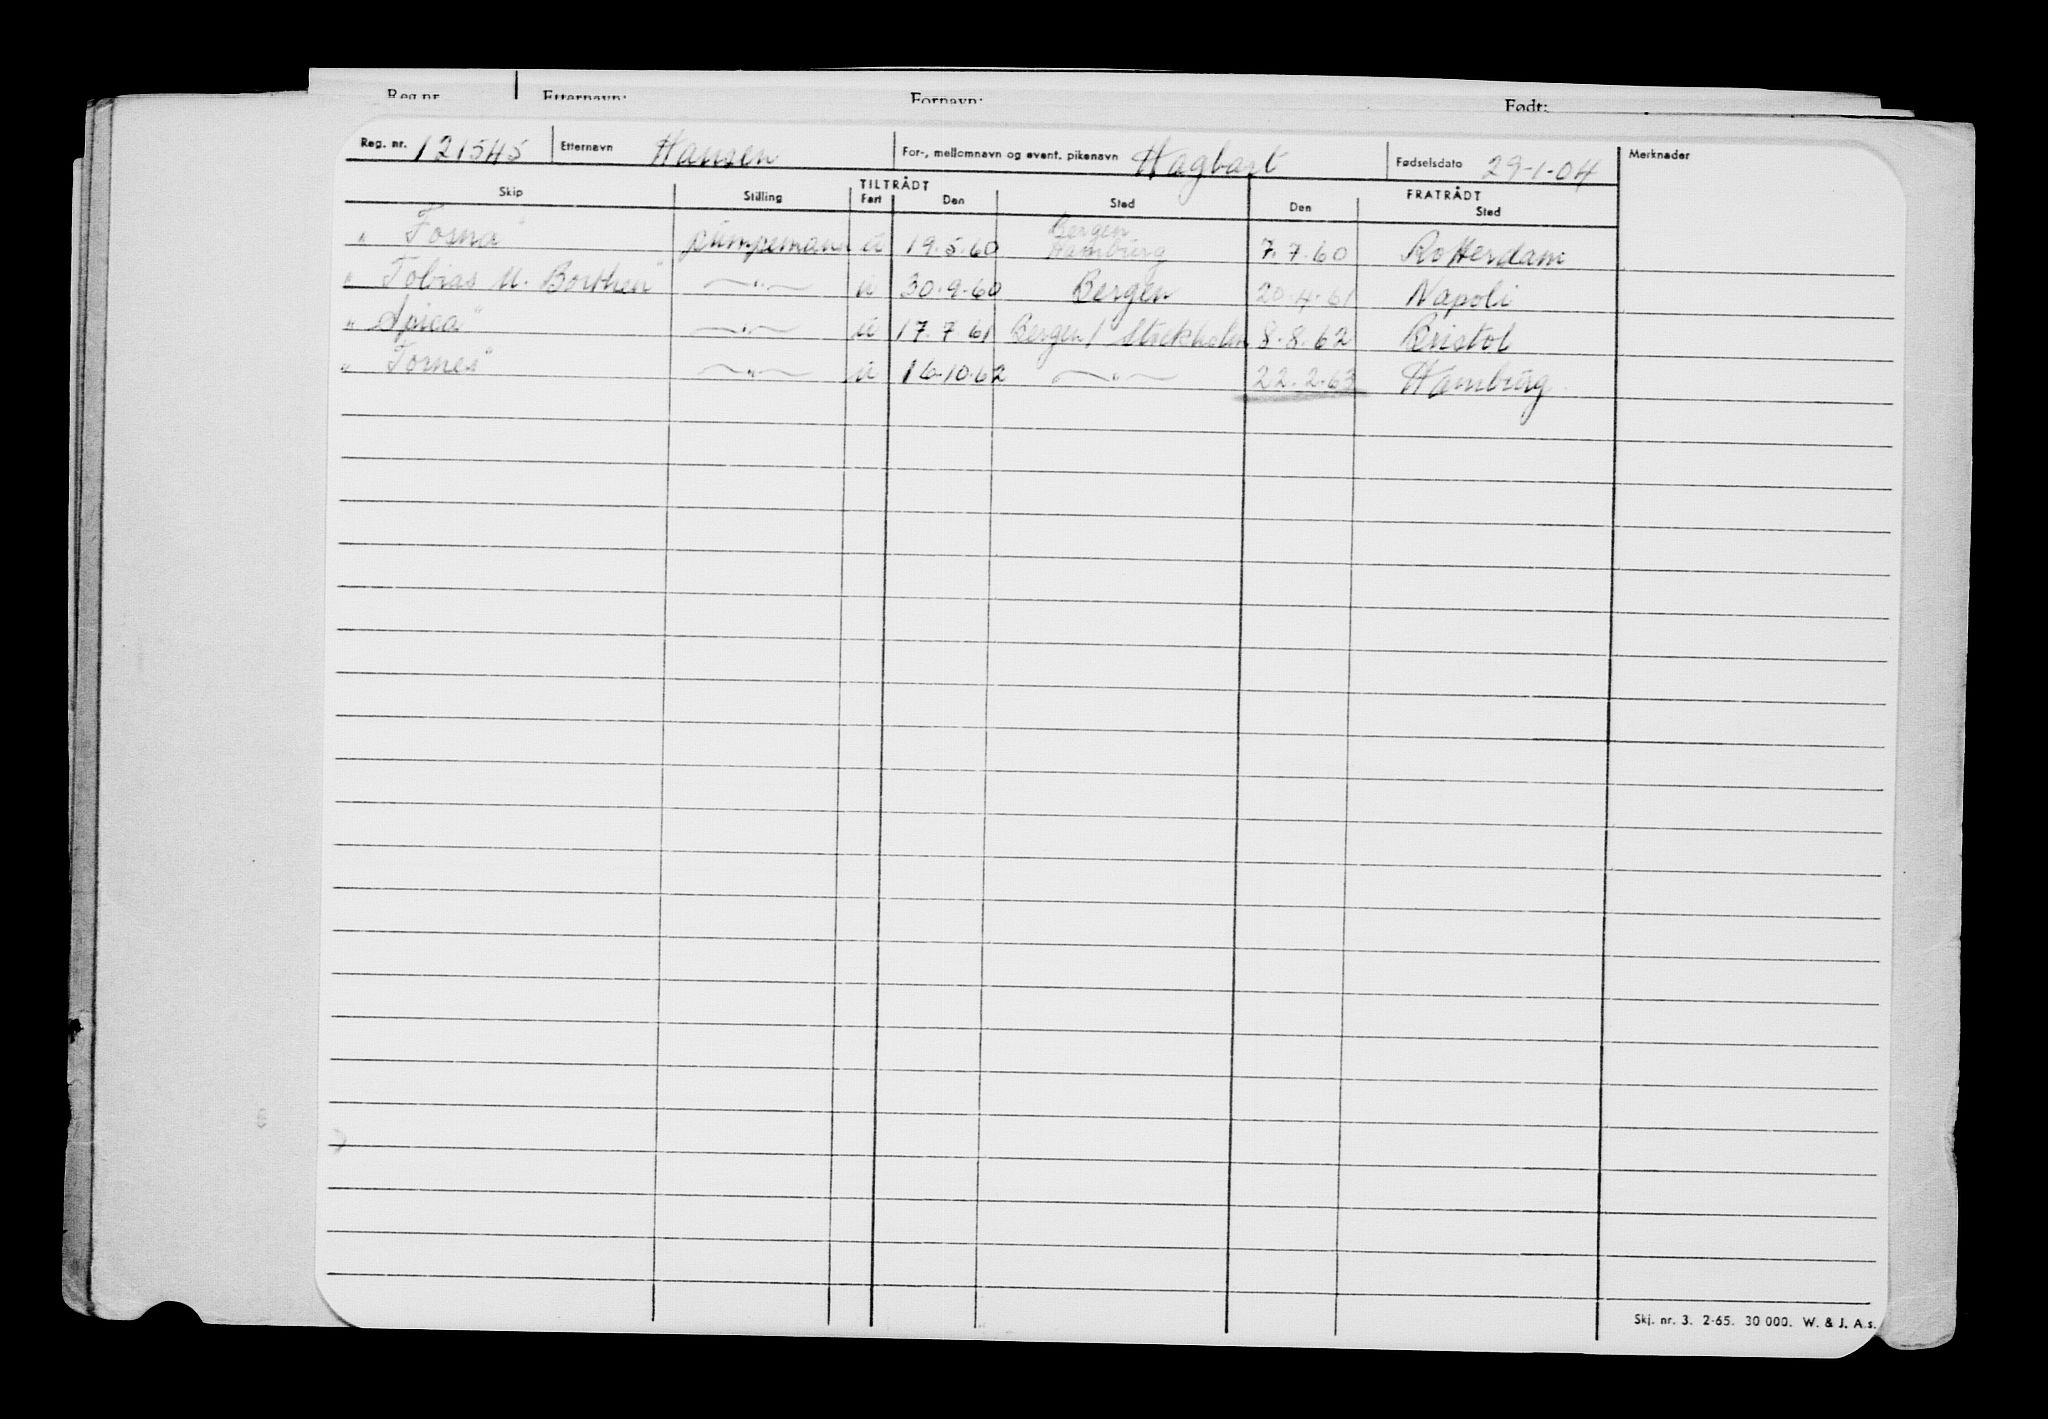 Reg. nr. Etternavn: Fornavn: Født:
Reg. nr. 121545 Etternavn Hansen For-, mellomnavn og event. pikenavn Hagbart Fødselsdato 29-1-04 Merknader
TILTRÅDT FRATRÅDT
Skip Stilling Fart Den Sted Den Sted
Bergen
" Fosna" pumpemann u 19.5.60 Hamburg 7.7.60 Rotterdam
" Tobias U. Borthen" —"— u 30.9.60 Bergen 20.4.61 Napoli
" Spica" —"— u 17.7.61 Bergen / Stockholm 8.8.62 Bristol
" Fornes" —"— u 16.10.62 —"— 22.2.63 Hamburg.
Skj. nr. 3. 2-65. 30 000. W. & J. A.s.